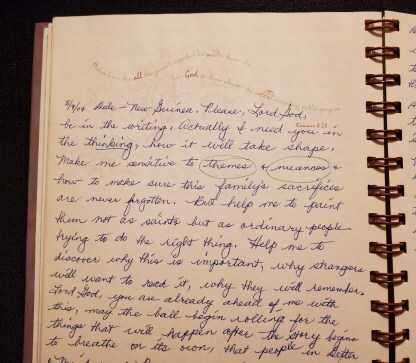 God
Romans 8:28
8/9/04 Dale – New Guinea. Please, Lord God,
be in the writing. Actually I need you in
the thinking, how it will take shape.
Make me sensitive to themes & nuances &
how to make sure this family's sacrifices
are never frgotten. But help me to paint
them not as saints but as ordinary people
trying to do the right thing. Help me to
discover why this is important, why strangers
will want to read it, why they will remember.
Lord God, you are already ahead of me with
this, may the ball begin rolling for the
things that will happen after the story begins
to breathe on its own, that people in